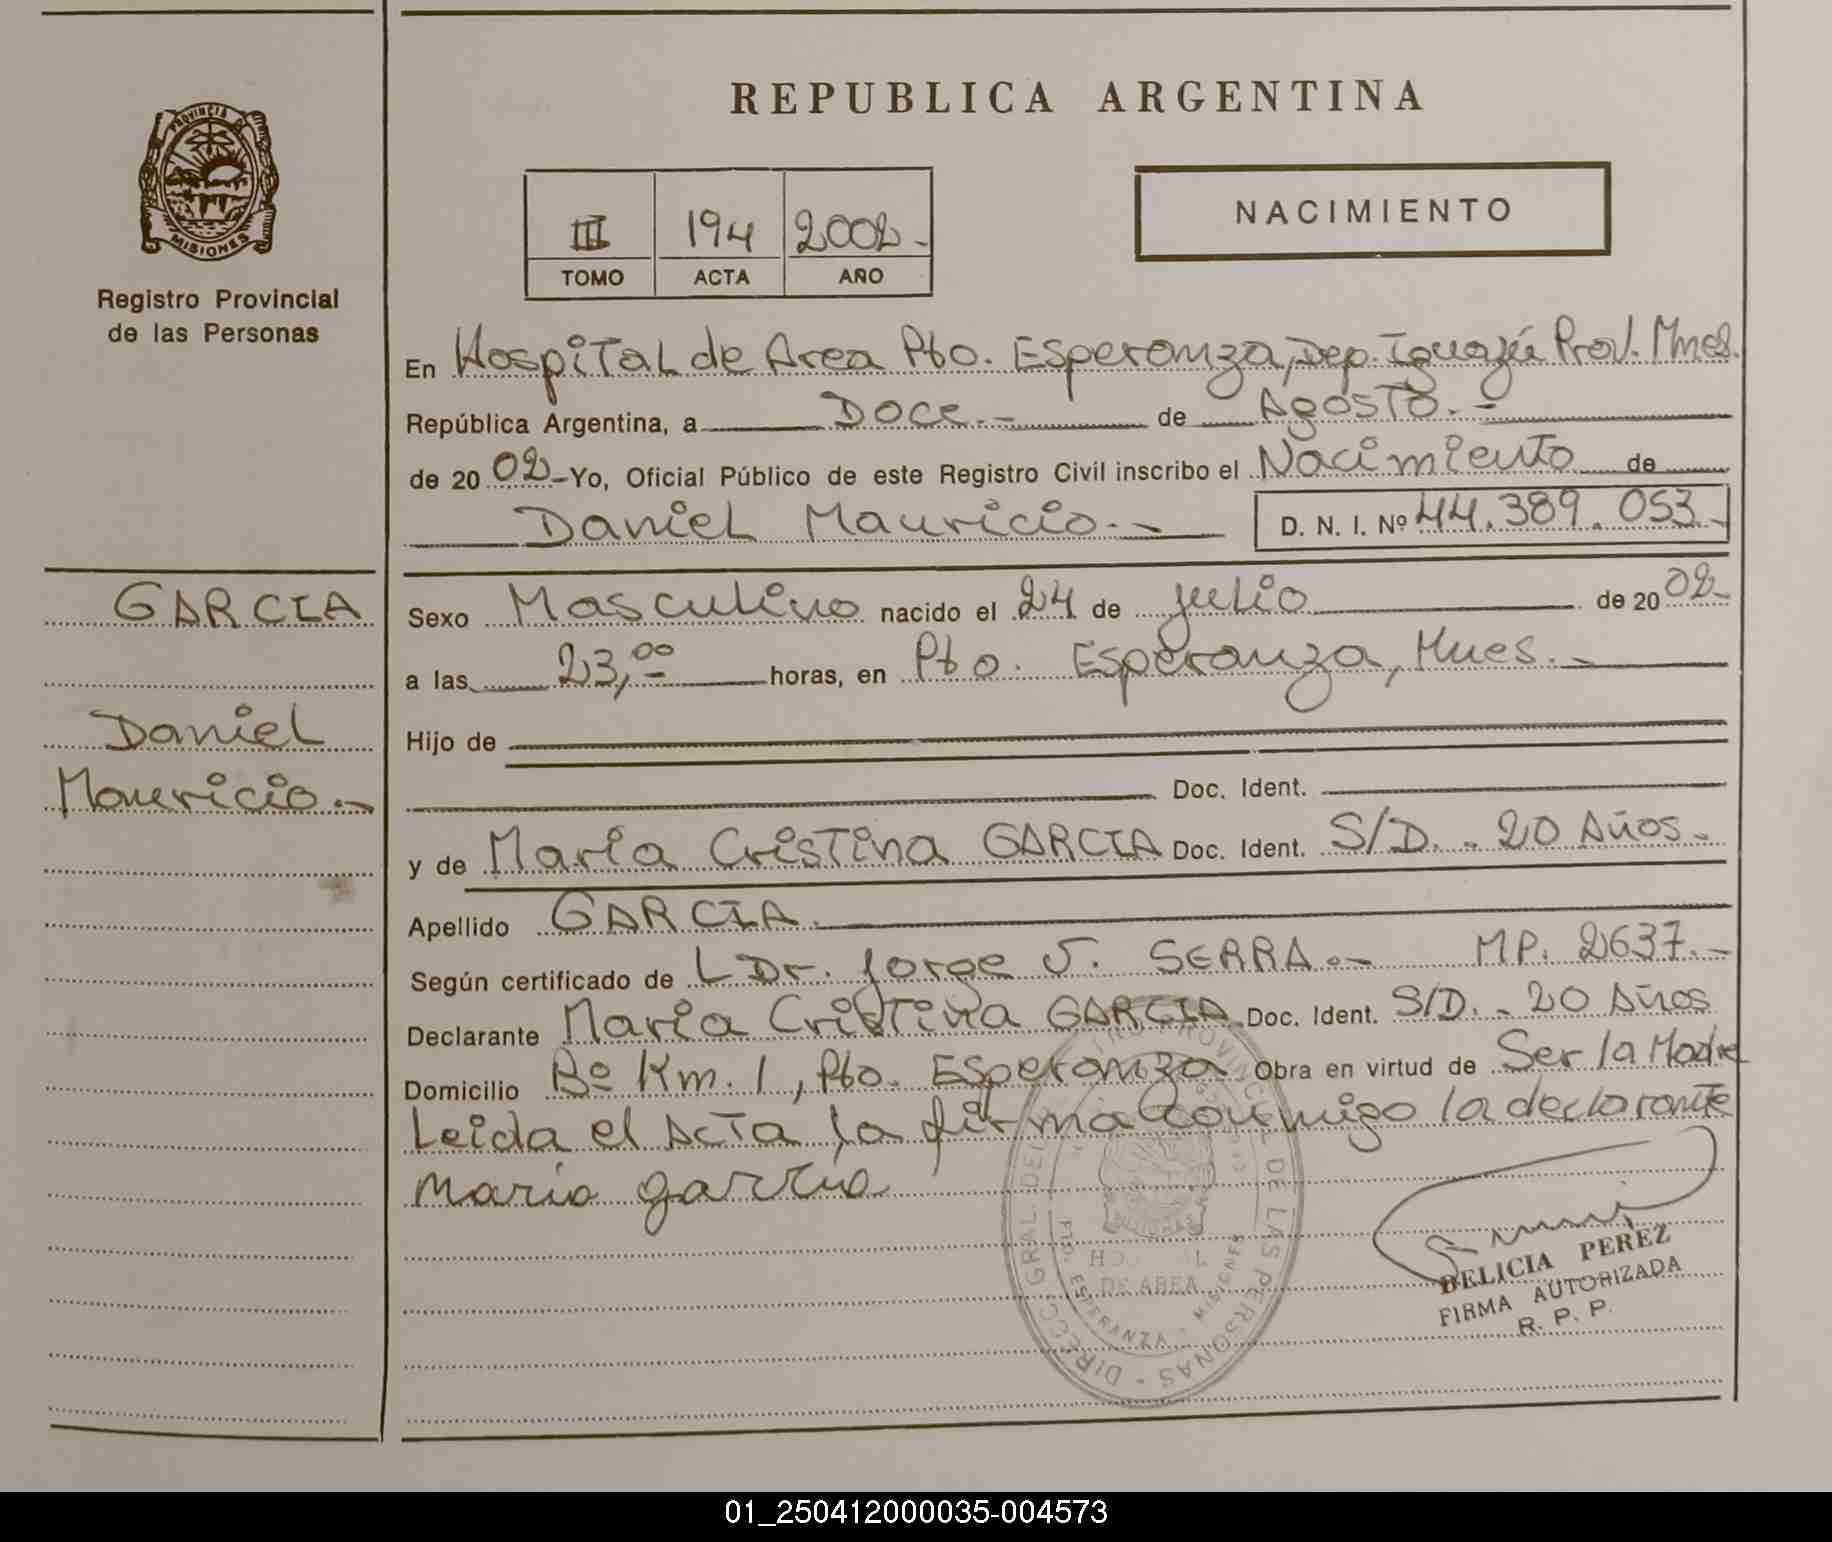 REPUBLICA ARGENTINA
PROVINCIA DE
MISIONES
Registro Provincial
de las Personas
III 194 2002.-
TOMO ACTA AÑO
NACIMIENTO
En Hospital de Area Pto. Esperanza, Dep. Iguazú Prov. Mnes.
República Argentina, a Doce.- de Agosto.-
de 2002-Yo, Oficial Público de este Registro Civil inscribo el Nacimiento de
Daniel Mauricio.- D. N. I. Nº 44.389.053.-
GARCIA
Daniel
Mauricio.-
Sexo Masculino nacido el 24 de julio de 2002-
a las 23,00 horas, en Pto. Esperanza, Mnes.-
Hijo de
Doc. Ident.
y de Maria Cristina GARCIA Doc. Ident. S/D.- 20 Años.-
Apellido GARCIA.
Según certificado de L Dr. Jorge J. SERRA.- MP. 2637.-
Declarante Maria Cristina GARCIA Doc. Ident. S/D.- 20 Años
Domicilio Bº Km. 1, Pto. Esperanza Obra en virtud de Ser la Madre
Leida el Acta, la firma conmigo la declarante
Maria garcia
DIRECC. GRAL. DEL PROVINCIAL DE LAS PERSONAS
DE AREA
ESPERANZA - MISIONES
DELICIA PEREZ
FIRMA AUTORIZADA
R. P. P.
01_250412000035-004573